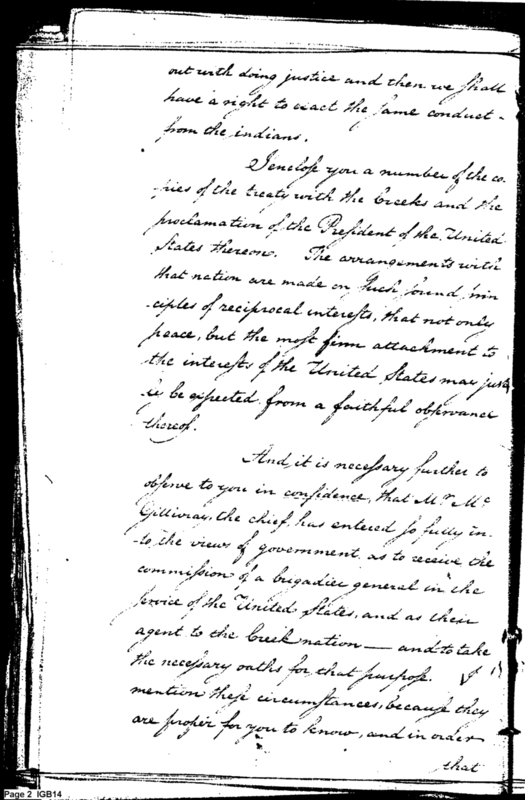 out with doing justice and then we shall
have a right to exact the same conduct
from the indians.
I enclose you a number of the co-
pies of the treaty with the Creeks and the
proclamation of the President of the United
States thereon. The arrangements with
that nation are made on such sound prin
ciples of reciprocal interests, that not only
peace, but the most firm attachment to
the interests of the United States may just
ly be expected from a faithful observance
thereof.
And it is necessary further to
observe to you in confidence, that Mr. Mc
Gillivray, the chief, has entered so fully in-
to the views of government, as to receive the
commission of a brigadier general in the
service of the United States, and as their
agent to the Creek nation — and to take
the necessary oaths for that purpose. I
mention these circumstances, because they
are proper for you to know, and in order
that
Page 2 IGB14